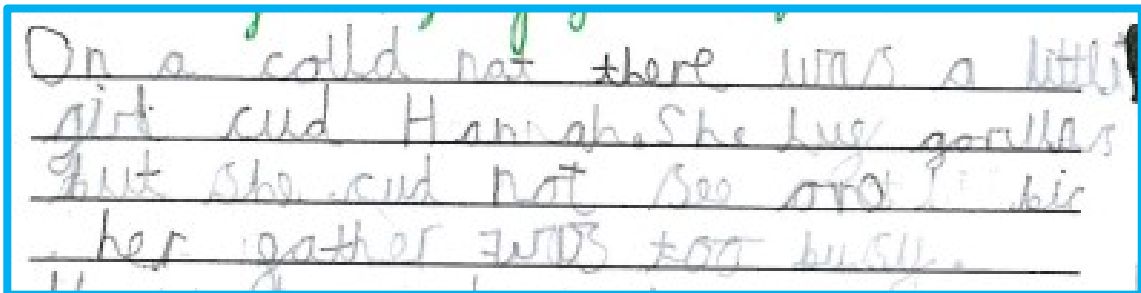 On a colld nat there was a little
girl cud Hannah. She luv gorillas
but she cud not see
her gather was too busy.